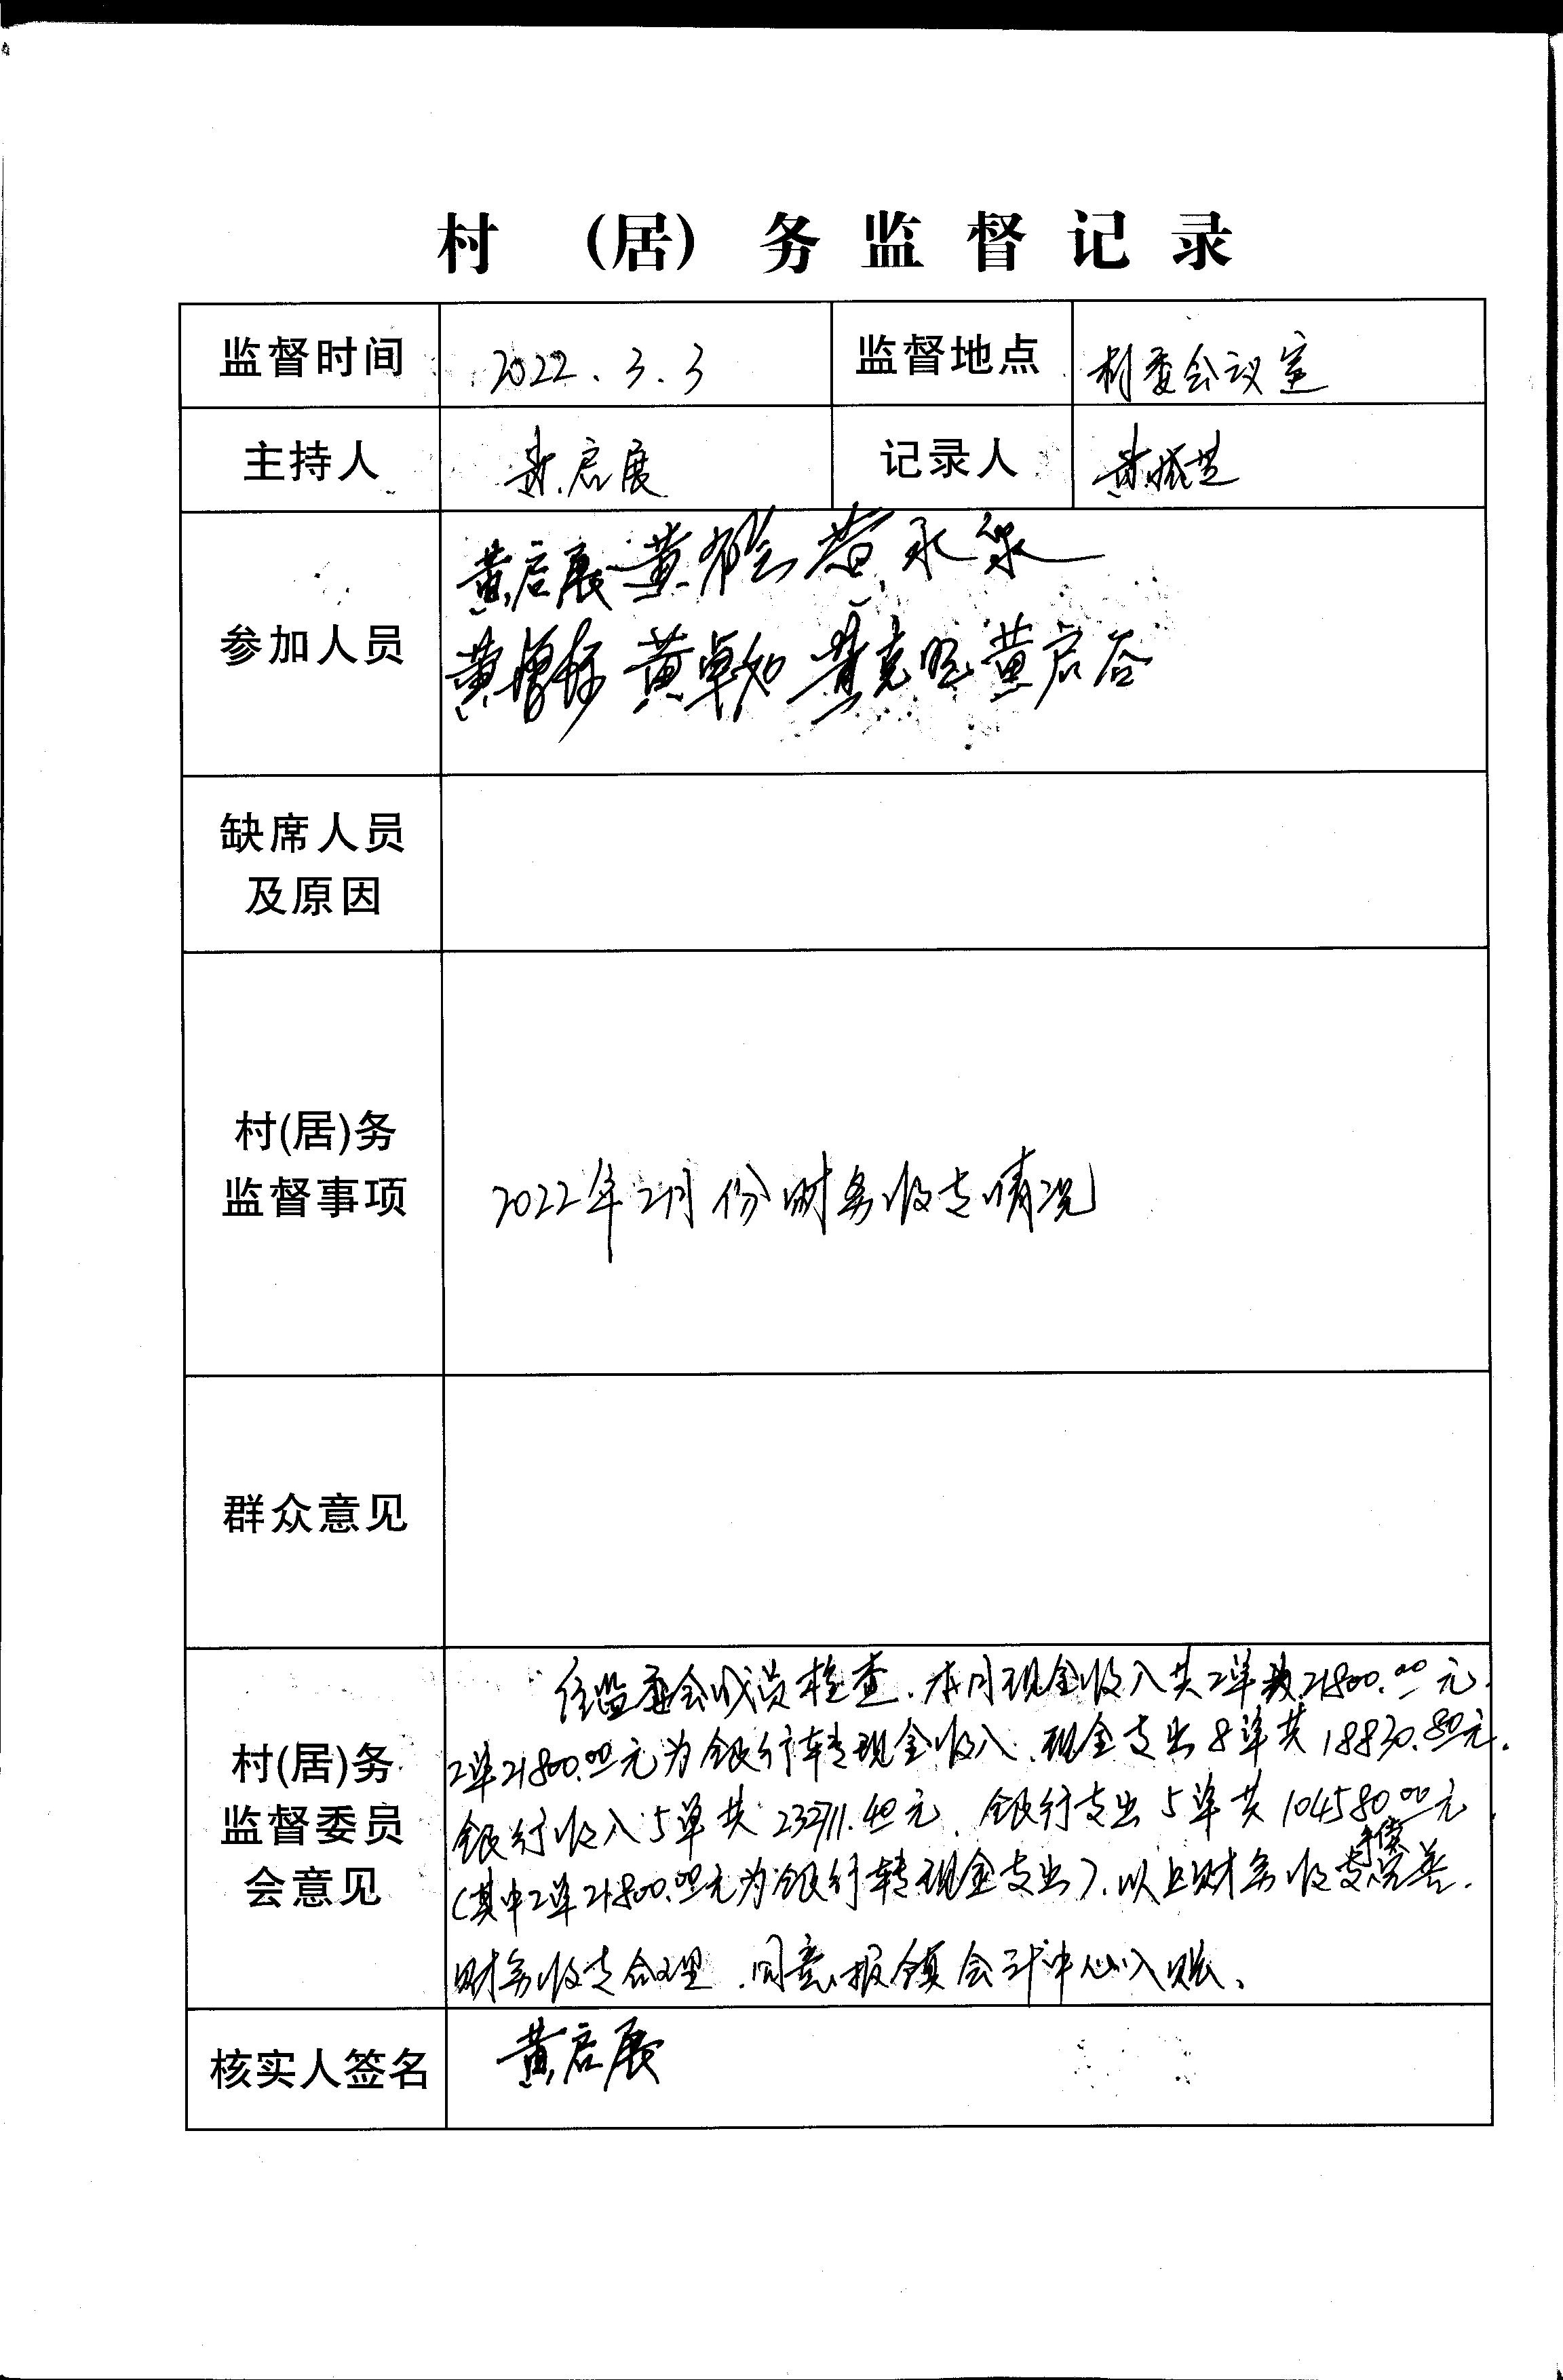 村 (居) 务监督记录
监督时间 2022.3.3 监督地点 村委会议室
主持人 黄启展 记录人 黄振芝
黄启展 黄 黄永泉
参加人员
黄增标 黄卓如 黄克 黄启谷
缺席人员
及原因
村(居)务
监督事项 2022年2月份财务收支情况
群众意见
村(居)务
监督委员
会意见
经监委会成员检查.本月现金收入共2单 21800.00元.
2单21800.00元为银行转现金收入.现金支出8单共18830.80元.
银行收入5单共232711.40元.银行支出5单共104580.00元
(其中2单21800.00元为银行转现金支出).以上财务收支手续完善.
财务收支合理.同意报镇会计中心入账.
核实人签名 黄启展